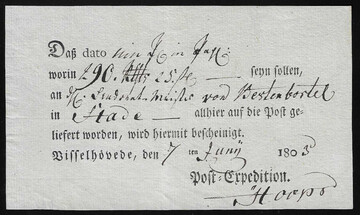 Daß dato ein P. in
worin 290. Rthlr 25. — seyn sollen,
an H. von Bestenbostel
in Stade — allhier auf die Post ge-
liefert worden, wird hiermit bescheinigt.
Visselhövede, den 7 ten Juny 1803
Post-Expedition.
Hoops